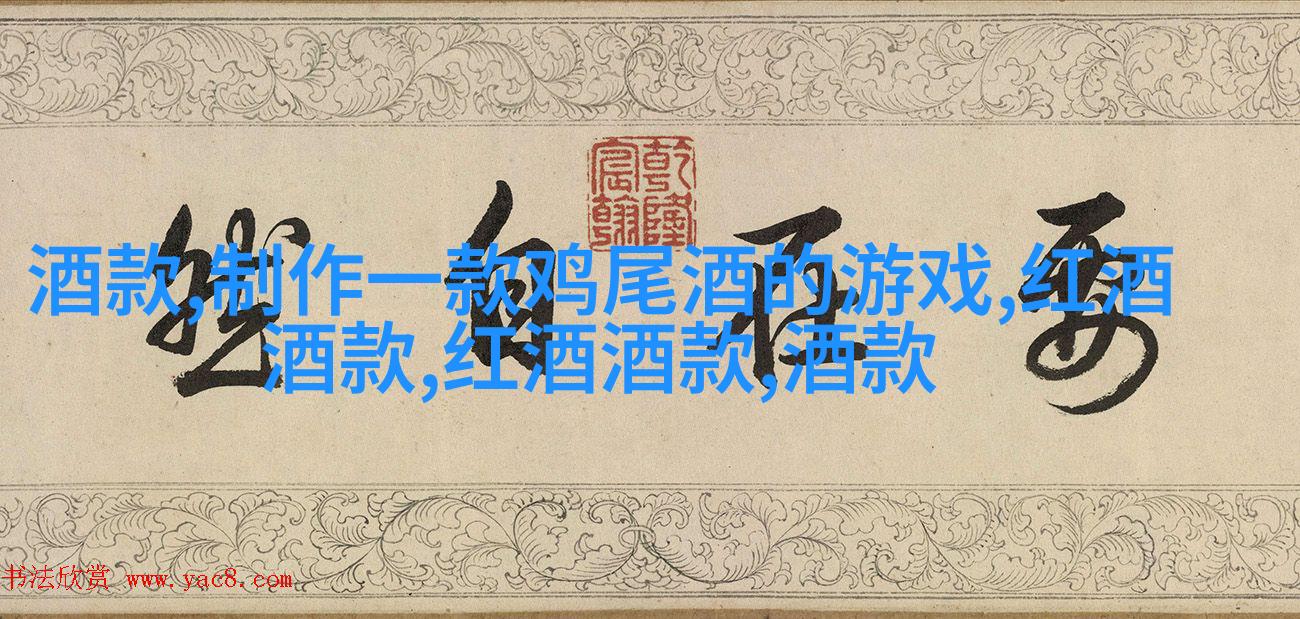 乾隆宸翰
要在自然
酒款,制作一款鸡尾酒的游戏,红酒
酒款,红酒酒款,酒款
书法欣赏 www.yac8.com